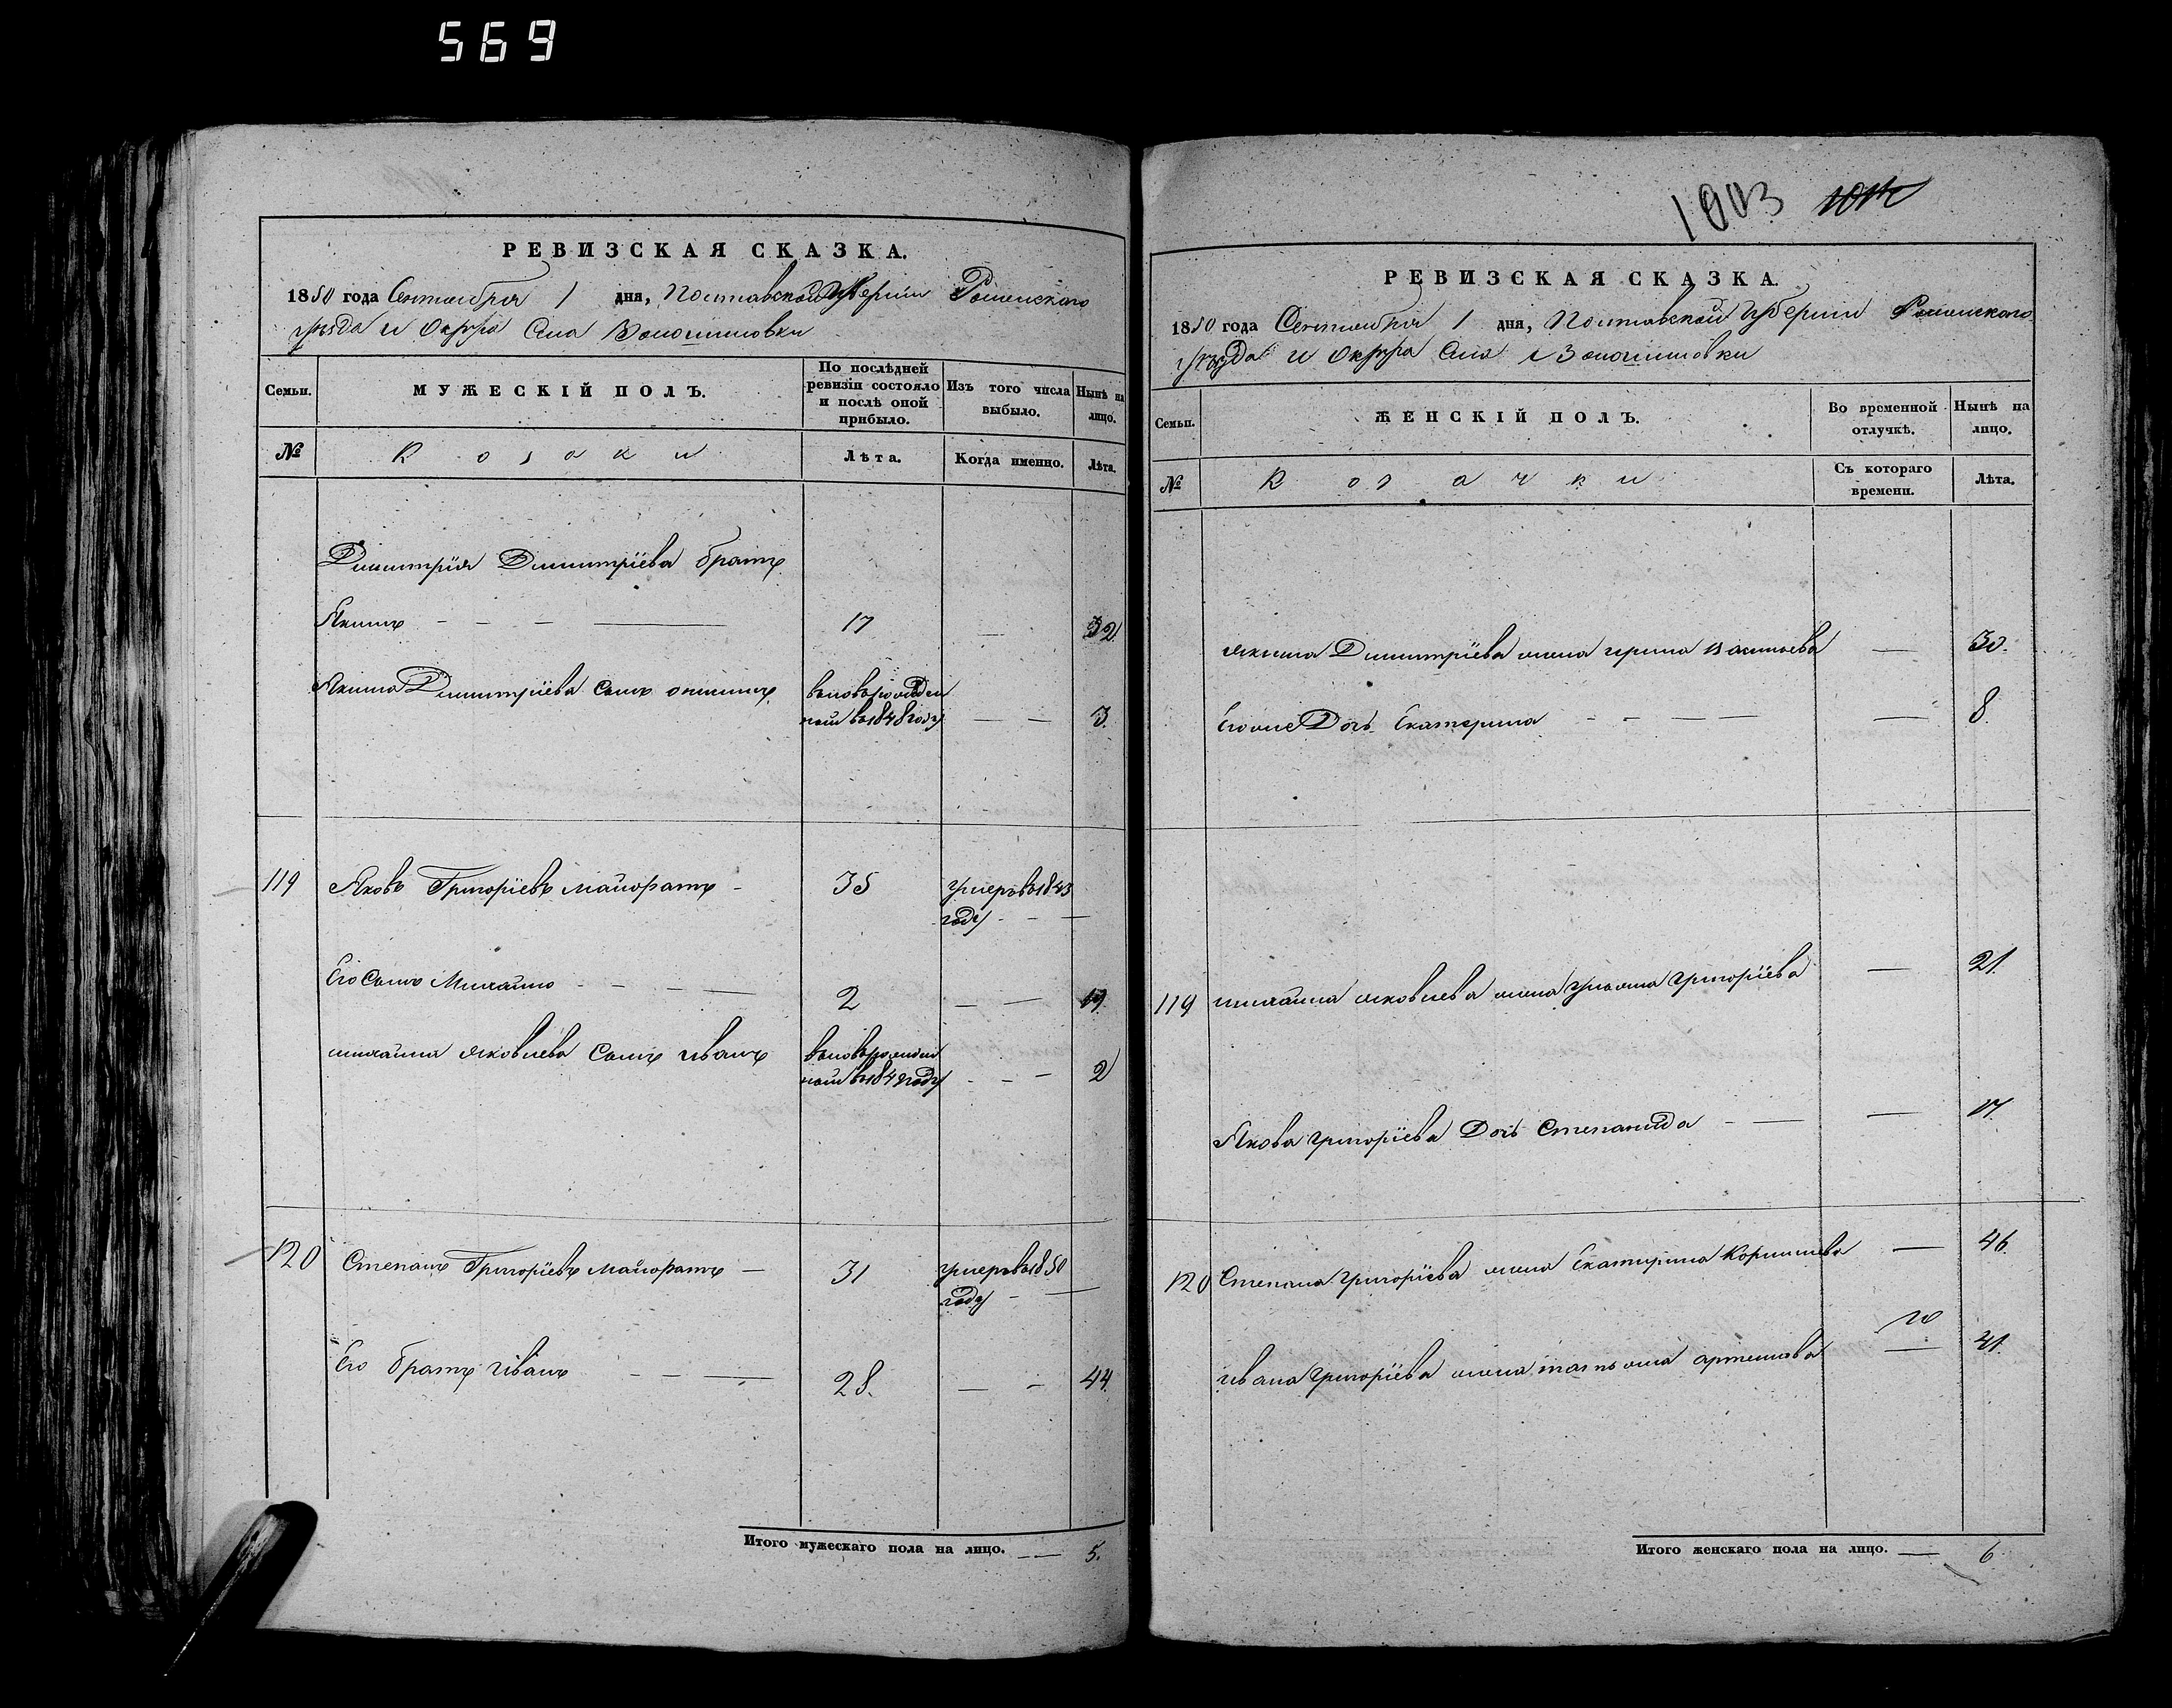 569
РЕВИЗСКАЯ СКАЗКА.
1850 года Сентября 1 дня, Полтавской Губерніи Роменскаго
уѣзда и Округа Села Волошиновки
Семьи. МУЖЕСКІЙ ПОЛЪ. По послѣдней ревизіи состояло и послѣ оной прибыло. Изъ того числа выбыло. Нынѣ на лицо.
№ Козаки Лѣта. Когда именно. Лѣта.
Димитрія Димитріева братъ
Якимъ 17 32
Якима Димитріева сынъ Онисимъ вновьрожден
ный въ 1848 году 3.
119 Яковъ Григоріевъ Маіоратъ 35 умеръ въ 1843
году
Его Сынъ Михайло 2
Михайла Яковлева Сынъ Иванъ вновьрожден
ный въ 1849 году 2
120 Степанъ Григоріевъ Маіоратъ 31 умеръ въ 1850
году
Его братъ Иванъ 28. 44.
Итого мужескаго пола на лицо. 5.
1003
РЕВИЗСКАЯ СКАЗКА.
1850 года Сентября 1 дня, Полтавской Губерніи Роменскаго
уѣзда и Округа Села Волошиновки
Семьи. ЖЕНСКІЙ ПОЛЪ. Во временной отлучкѣ. Нынѣ на лицо.
№ Козачки Съ котораго времени. Лѣта.
Якима Димитріева жена Ирина Васильева 30.
Его же Дочь Екатерина 8.
119 Михайла Яковлева жена Ульяна Григоріева 21.
Якова Григоріева Дочь Степанида 17
120 Степана Григоріева жена Екатерина Корнилиева 46.
Ивана Григоріева жена Татьяна Артемова 41.
Итого женскаго пола на лицо. 6